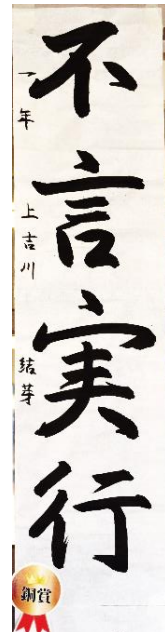 不言実行
一年 上吉川 結芽
銅賞